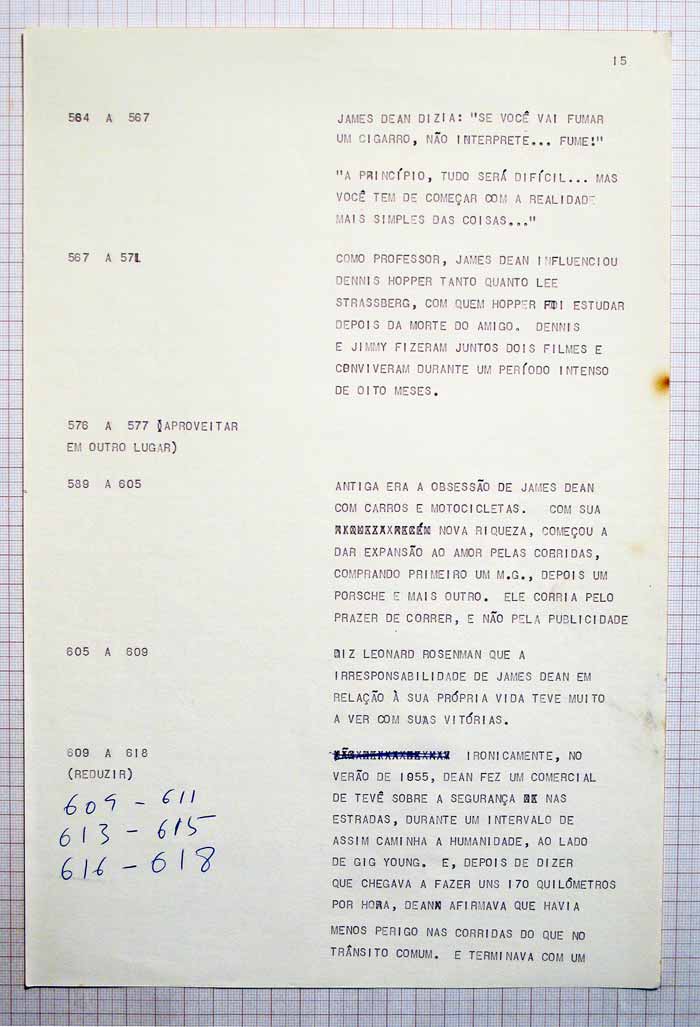 15
564 A 567
JAMES DEAN DIZIA: "SE VOCÊ VAI FUMAR
UM CIGARRO, NÃO INTERPRETE... FUME!"
"A PRINCÍPIO, TUDO SERÁ DIFÍCIL... MAS
VOCÊ TEM DE COMEÇAR COM A REALIDADE
MAIS SIMPLES DAS COISAS..."
567 A 571
COMO PROFESSOR, JAMES DEAN INFLUENCIOU
DENNIS HOPPER TANTO QUANTO LEE
STRASSBERG, COM QUEM HOPPER FOI ESTUDAR
DEPOIS DA MORTE DO AMIGO. DENNIS
E JIMMY FIZERAM JUNTOS DOIS FILMES E
CONVIVERAM DURANTE UM PERÍODO INTENSO
DE OITO MESES.
576 A 577 (APROVEITAR
EM OUTRO LUGAR)
589 A 605
ANTIGA ERA A OBSESSÃO DE JAMES DEAN
COM CARROS E MOTOCICLETAS. COM SUA
NOVA RIQUEZA, COMEÇOU A
DAR EXPANSÃO AO AMOR PELAS CORRIDAS,
COMPRANDO PRIMEIRO UM M.G., DEPOIS UM
PORSCHE E MAIS OUTRO. ELE CORRIA PELO
PRAZER DE CORRER, E NÃO PELA PUBLICIDADE
605 A 609
DIZ LEONARD ROSENMAN QUE A
IRRESPONSABILIDADE DE JAMES DEAN EM
RELAÇÃO À SUA PRÓPRIA VIDA TEVE MUITO
A VER COM SUAS VITÓRIAS.
609 A 618
(REDUZIR)
609 - 611
613 - 615
616 - 618
IRONICAMENTE, NO
VERÃO DE 1955, DEAN FEZ UM COMERCIAL
DE TEVÊ SOBRE A SEGURANÇA NAS
ESTRADAS, DURANTE UM INTERVALO DE
ASSIM CAMINHA A HUMANIDADE, AO LADO
DE GIG YOUNG. E, DEPOIS DE DIZER
QUE CHEGAVA A FAZER UNS 170 QUILÓMETROS
POR HORA, DEAN AFIRMAVA QUE HAVIA
MENOS PERIGO NAS CORRIDAS DO QUE NO
TRÂNSITO COMUM. E TERMINAVA COM UM